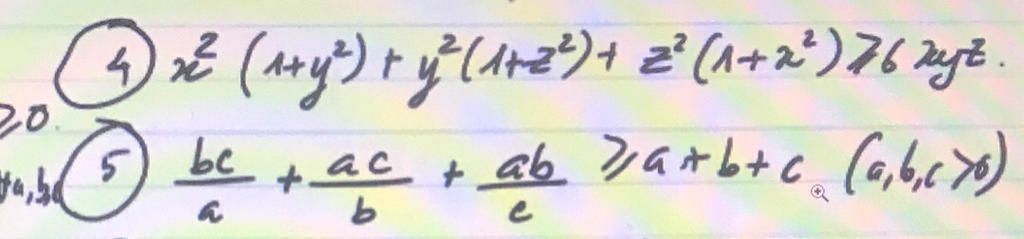 ④ x² (1+y²) + y²(1+z²) + z²(1+x²) ⩾ 6 xyz.
⩾0.
∀a,b,c ⑤ bc/a + ac/b + ab/c ⩾ a + b + c (a,b,c >0)